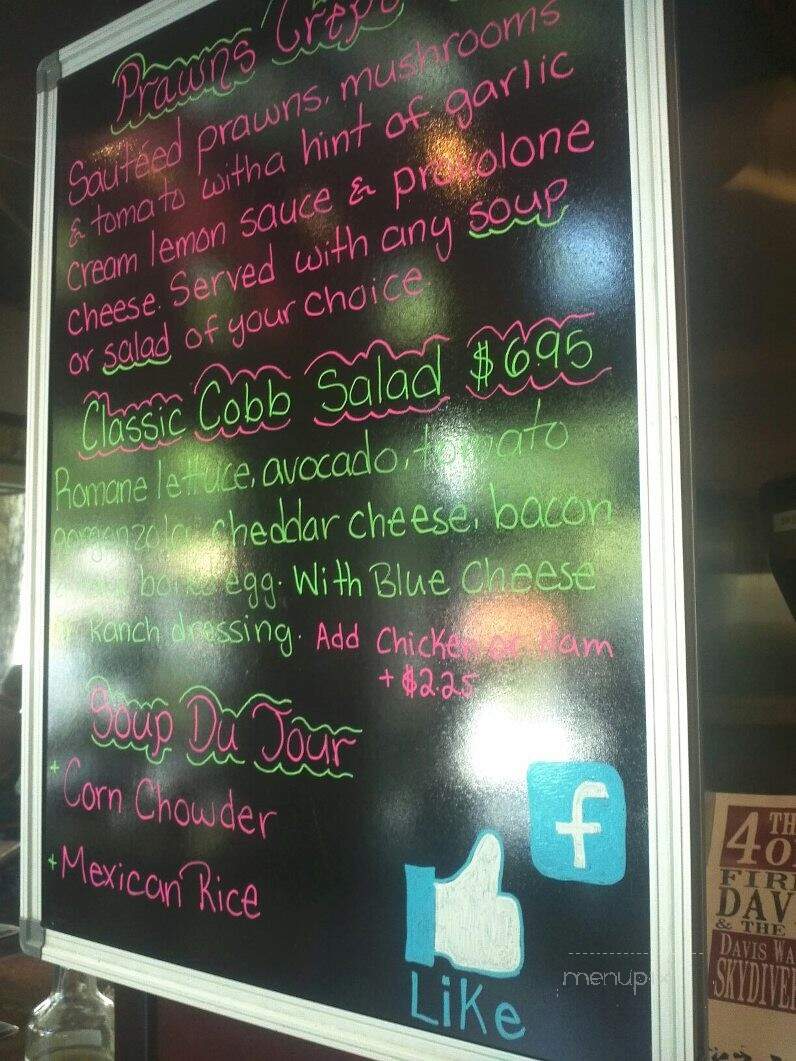 Prawns Crepe
Sautéed prawns, mushrooms
& tomato with a hint of garlic
cream lemon sauce & provolone
cheese. Served with any soup
or salad of your choice.
Classic Cobb Salad $6.95
Romane lettuce, avocado, tomato
gorgonzola, cheddar cheese, bacon
boiled egg. With Blue Cheese
or Ranch dressing. Add Chicken or Ham
+ $2.25
Soup Du Jour
+ Corn Chowder
+ Mexican Rice
f
Like
menup
4TH
FIR
DAV
& THE
DAVIS WA
SKYDIVE